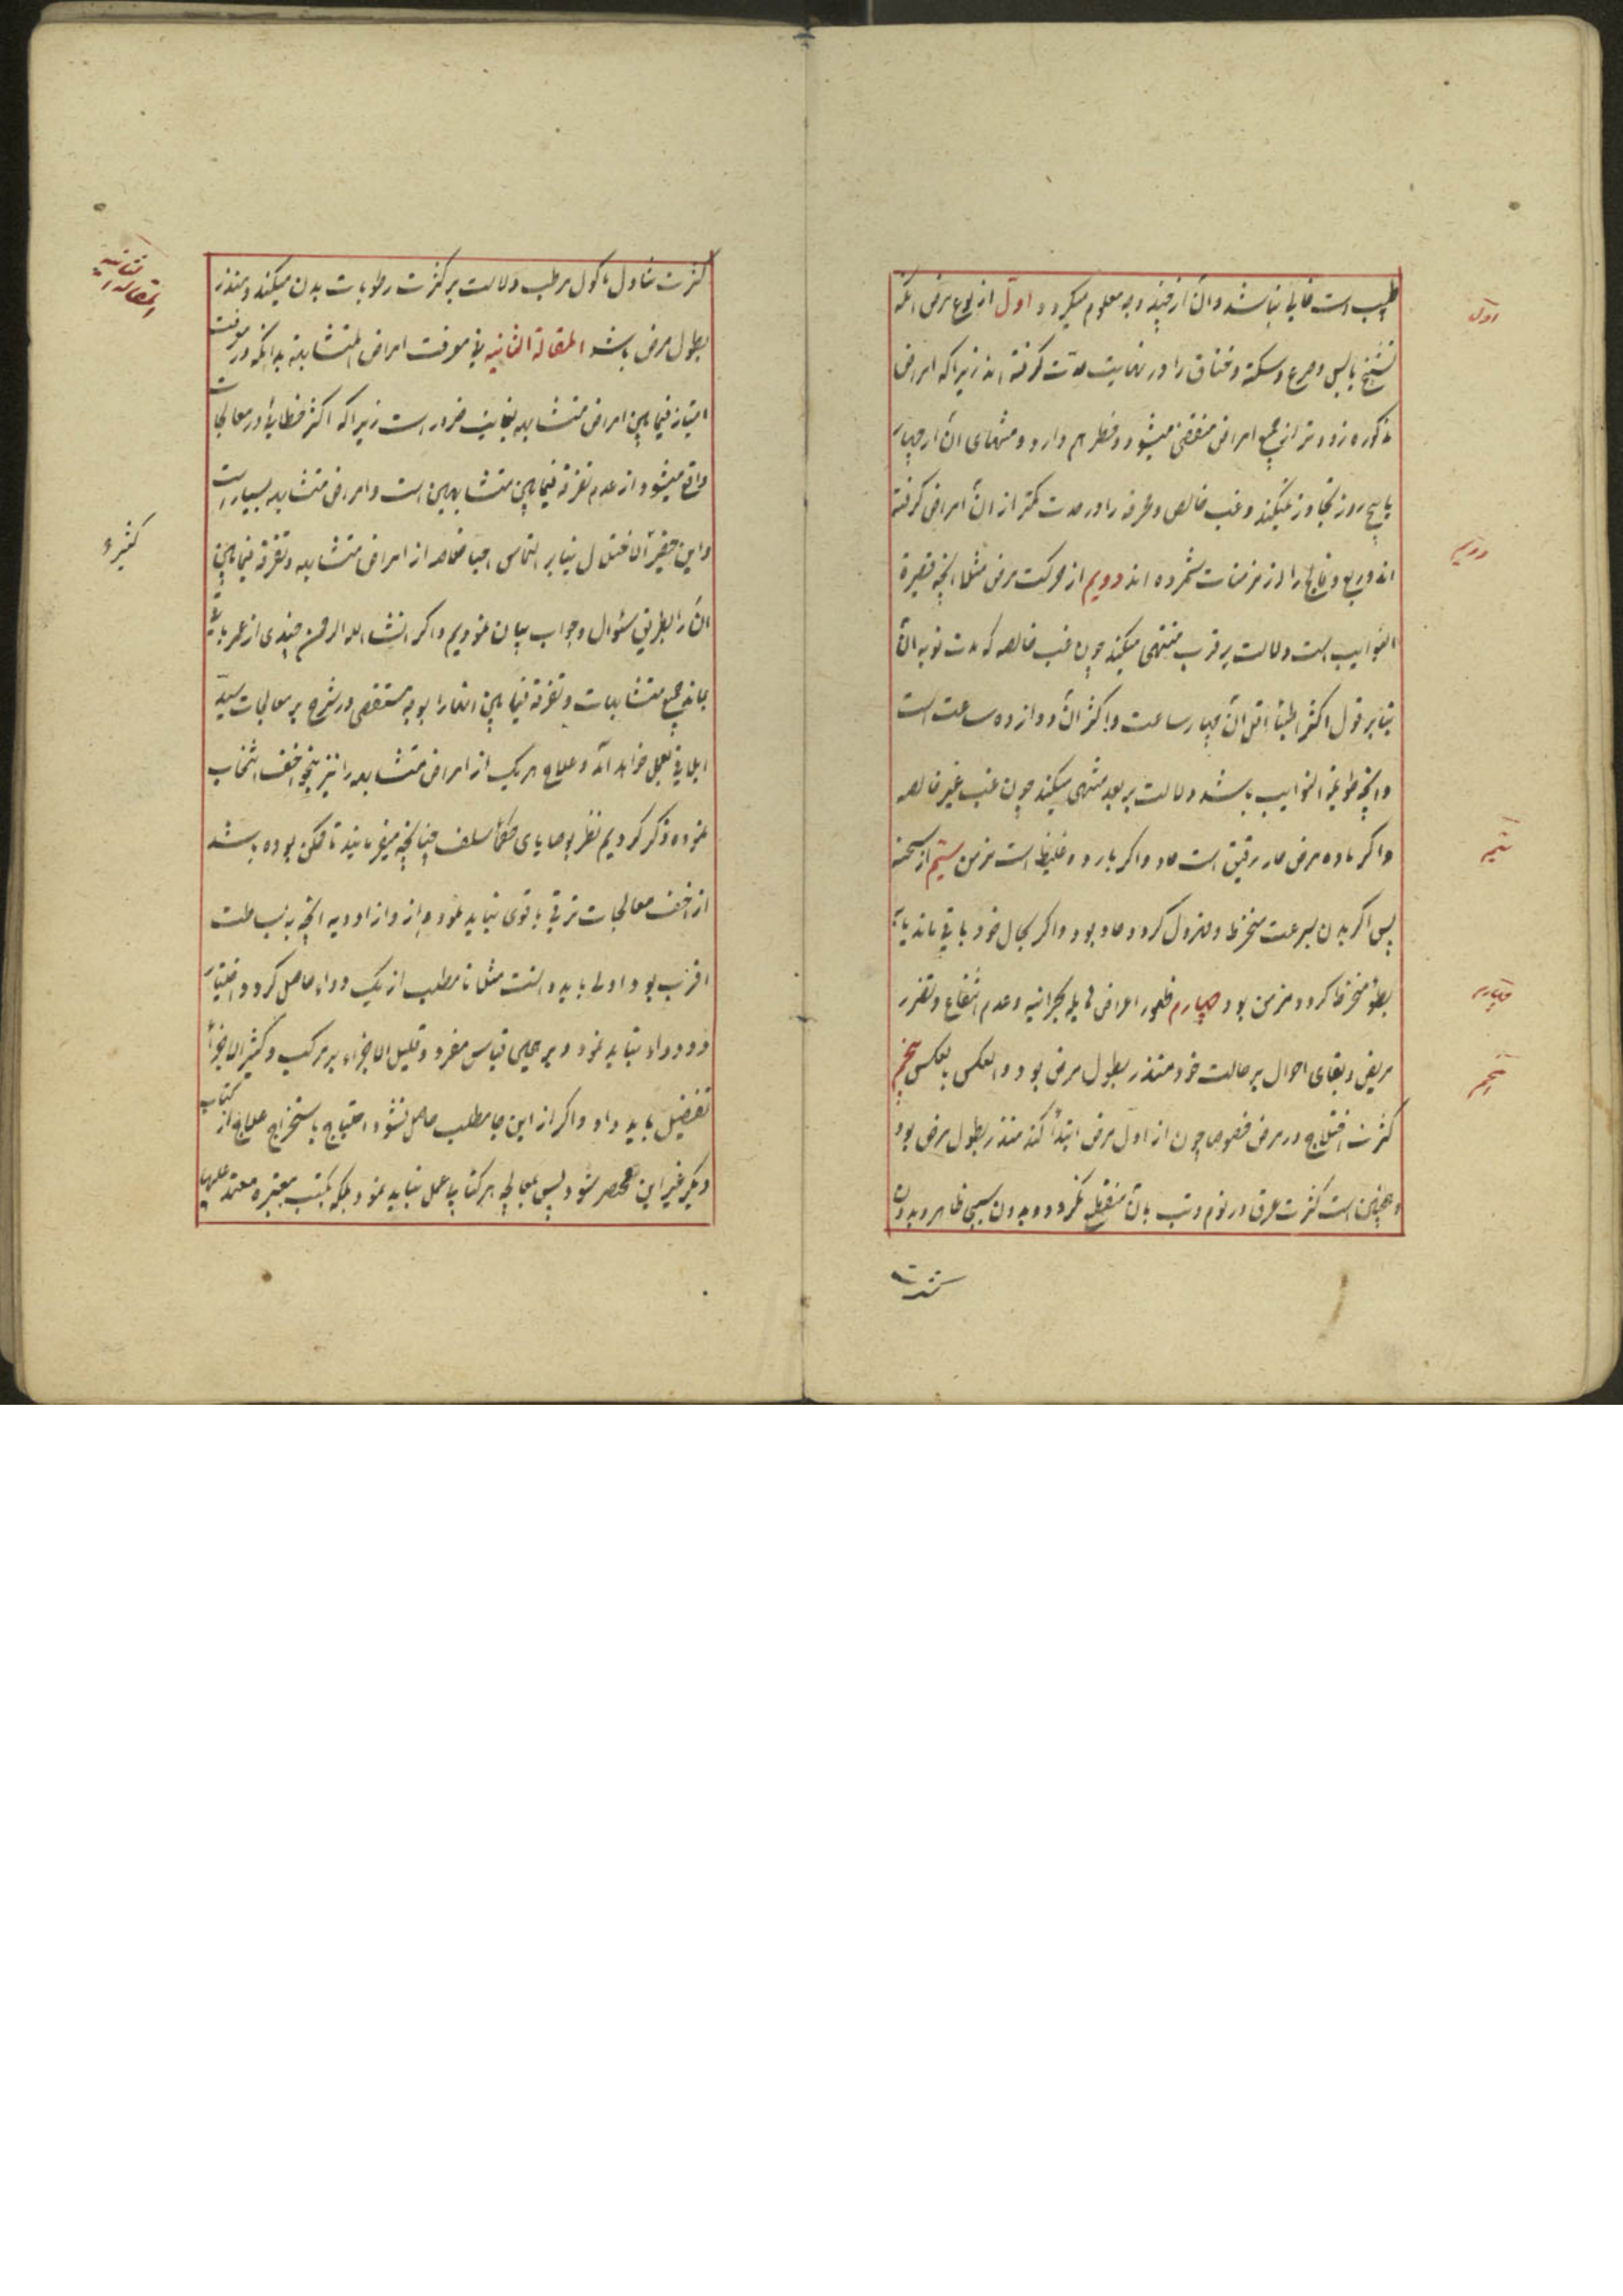 طبیب است خالی نباشد و ان از چند وجه معلوم میکردد اول از نوع مرض آنکه
تشنج یابس و صرع و سکته و خناق را در نهایت حدّت کرفته اند زیرا که امراض
مذکوره زودتر از جمیع امراض منقضی میشود و خطر هم دارد و منتهای ان از چهار
یا پنج روز تجاوز نمیکند و غب خالص و محرقه را در حدت کمتر از ان امراض کرفته
اند و ربع و فالج را از مزمنات شمرده اند دویم از حرکت مرض مثلا آنچه قصیرة
النوایب است دلالت بر قرب منتهی میکند چون غب خالصه که مدت نوبه ان
بنابر قول اکثر اطبا اقل ان چهار ساعت و اکثر ان دوازده ساعت است
و آنچه طویلة النوایب باشد دلالت بر بعد منتهی میکند چون غب غیر خالصه
و اکر ماده مرض حار رقیق است حاد و اکر بارد و غلیظ است مزمن سیّم از سحنه
پس اکر بدن بسرعت منخرط و مهزول کردد حاد بود و اکر بحال خود باقی ماند یا
بطؤ منخرط کردد مزمن بود چهارم ظهور اعراض هایله بحرانیه و عدم انتفاع و تضرر
مریض و بقای احوال بر حالت خود منذر بطول مرض بود و العکس بالعکس پنجم
کثرت اختلاج در مرض خصوصا چون از اول مرض ابتدأ کند منذر بطول مرض بود
و همچنین است کثرت عرق در نوم و تب بان منقطع نکردد و بدون سببی ظاهر و بدون
کثرت
اول
دویم
سیم
چهارم
پنجم
کثرت تناول ماکول مرطب دلالت بر کثرت رطوبات بدن میکند و منذر
بطول مرض باشد المقالة الثانیه فی معرفت امراض المتشابهة بدانکه در معرفت
امتیاز فیمابین امراض متشابهه بغایت ضرور است زیرا که اکثر خطایا در معالجات
واقع میشود از عدم تفرقه فیمابین متشابهین است و امراض متشابهه بسیار است
و این حقیر الاختلال بنابر التماس احبا خلاصه از امراض متشابهه و تفرقه فیمابین
ان را بطریق سئوال و جواب بیان نمودیم و اکر انشاء الله الرحمن چندی از عمر باقی
بماند جمیع متشابهات و تفرقه فیمابین انها را بوجه مستقصی در شرح بر معالجات سید
ایلاقی بعمل خواهد آمد و علاج هر یک از امراض متشابهه را نیز بنحو اخف انتخاب
نموده ذکر کردیم نظر بوصایای حکمأ سلف چنانچه میفرمایند تا ممکن بوده باشد
از اخف معالجات ترقی باقوی نباید نمود و از ادویه آنچه به بساطت
اقرب بود اولی باید دانست مثلا تا مطلب از یک دواء حاصل کردد اختیار
دو دواء نباید نمود و بر همین قیاس مفرد و قلیل الاجزاء بر مرکب و کثیر الاجزأ
تفضیل باید داد و اکر از این جا مطلب حاصل نشود احتیاج باستخراج علاج از کتاب
دیکر غیر این مختصر شود پس بمعالجه هر کتاب عمل نباید نمود بلکه بکتب معتبره معتمد علیها
المقالة الثانیه
کثیرة